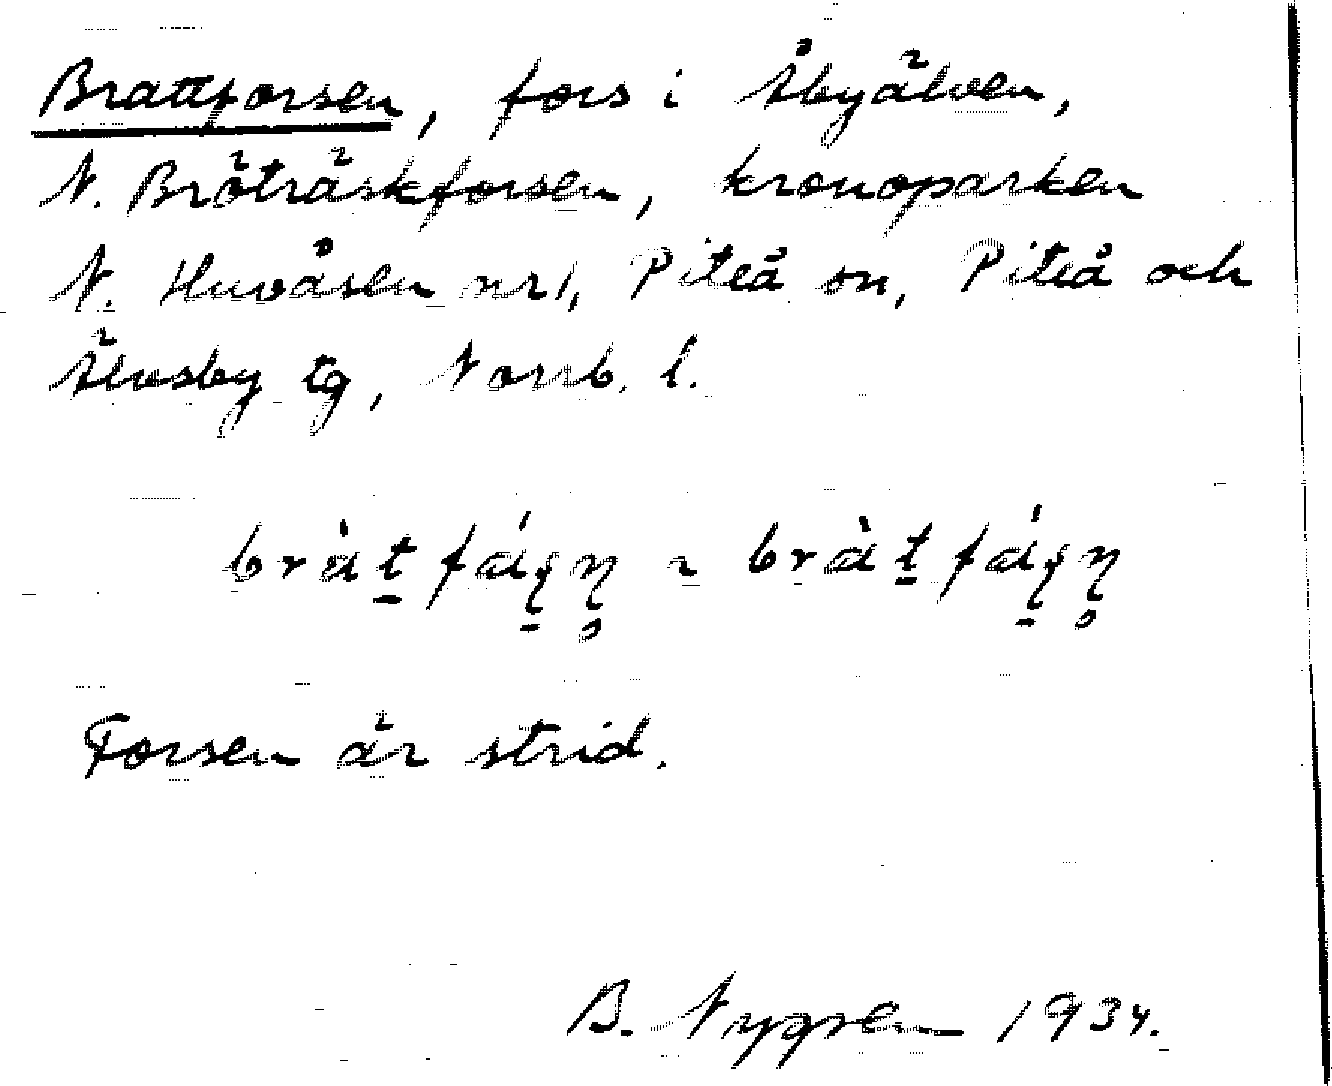 Brattforsen, fors i Åbyälven,
N. Bröträskforsen, kronoparken
N. Huvåsen nr 1, Piteå sn, Piteå och
Älvsby tg, Norrb. l.
Forsen är strid.
B. Nygren 1934.